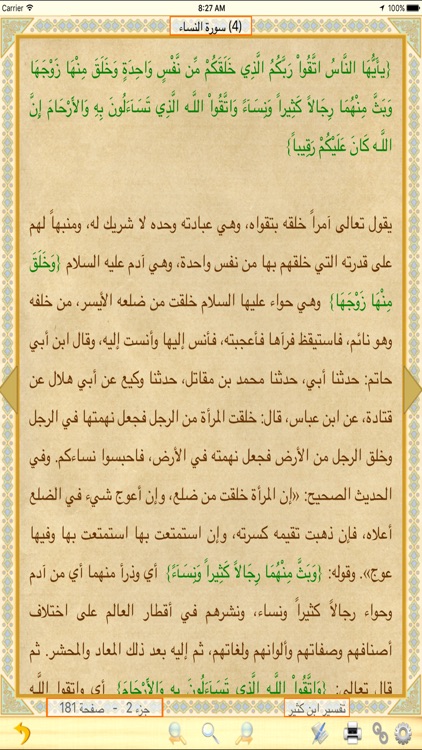 Carrier 8:27 AM 100%
(4) سورة النساء
{يَأَيُّهَا النَّاسُ اتَّقُواْ رَبَّكُمُ الَّذِي خَلَقَكُمْ مِّن نَّفْسٍ وَاحِدَةٍ وَخَلَقَ مِنْهَا زَوْجَهَا
وَبَثَّ مِنْهُمَا رِجَالاً كَثِيراً وَنِسَاءً وَاتَّقُواْ اللَّـه الَّذِي تَسَاءَلُونَ بِهِ وَالأَرْحَامَ إِنَّ
اللَّـه كَانَ عَلَيْكُمْ رَقِيباً}
يقول تعالى آمراً خلقه بتقواه، وهي عبادته وحده لا شريك له، ومنبهاً لهم
على قدرته التي خلقهم بها من نفس واحدة، وهي آدم عليه السلام {وَخَلَقَ
مِنْهَا زَوْجَهَا} وهي حواء عليها السلام خلقت من ضلعه الأيسر، من خلفه
وهو نائم، فاستيقظ فرآها فأعجبته، فأنس إليها وأنست إليه، وقال ابن أبي
حاتم: حدثنا أبي، حدثنا محمد بن مقاتل، حدثنا وكيع عن أبي هلال عن
قتادة، عن ابن عباس، قال: خلقت المرأة من الرجل فجعل نهمتها في الرجل
وخلق الرجل من الأرض فجعل نهمته في الأرض، فاحبسوا نساءكم. وفي
الحديث الصحيح: «إن المرأة خلقت من ضلع، وإن أعوج شيء في الضلع
أعلاه، فإن ذهبت تقيمه كسرته، وإن استمتعت بها استمتعت بها وفيها
عوج». وقوله: {وَبَثَّ مِنْهُمَا رِجَالاً كَثِيراً وَنِسَاءً} أي وذرأ منهما أي من آدم
وحواء رجالاً كثيراً ونساء، ونشرهم في أقطار العالم على اختلاف
أصنافهم وصفاتهم وألوانهم ولغاتهم، ثم إليه بعد ذلك المعاد والمحشر. ثم
قال تعالى: {وَاتَّقُواْ اللَّـه الَّذِي تَسَاءَلُونَ بِهِ وَالأَرْحَامَ} أي واتقوا اللَّـه
تفسير ابن كثير جزء 2 - صفحة 181